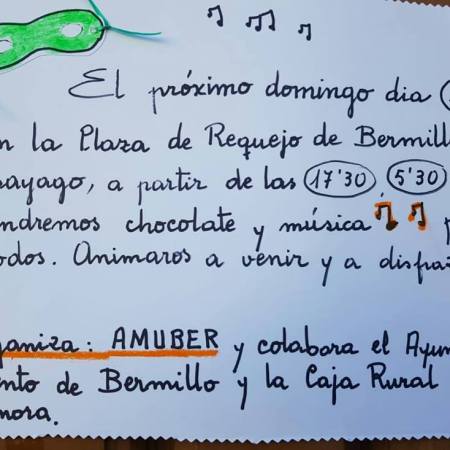 El próximo domingo dia
n la Plaza de Requejo de Bermill
sayago, a partir de las 17'30, 5'30
ndremos chocolate y música
odos. Animaros a venir y a disfra
ganiza: AMUBER y colabora el Ayun
ento de Bermillo y la Caja Rural
mora.